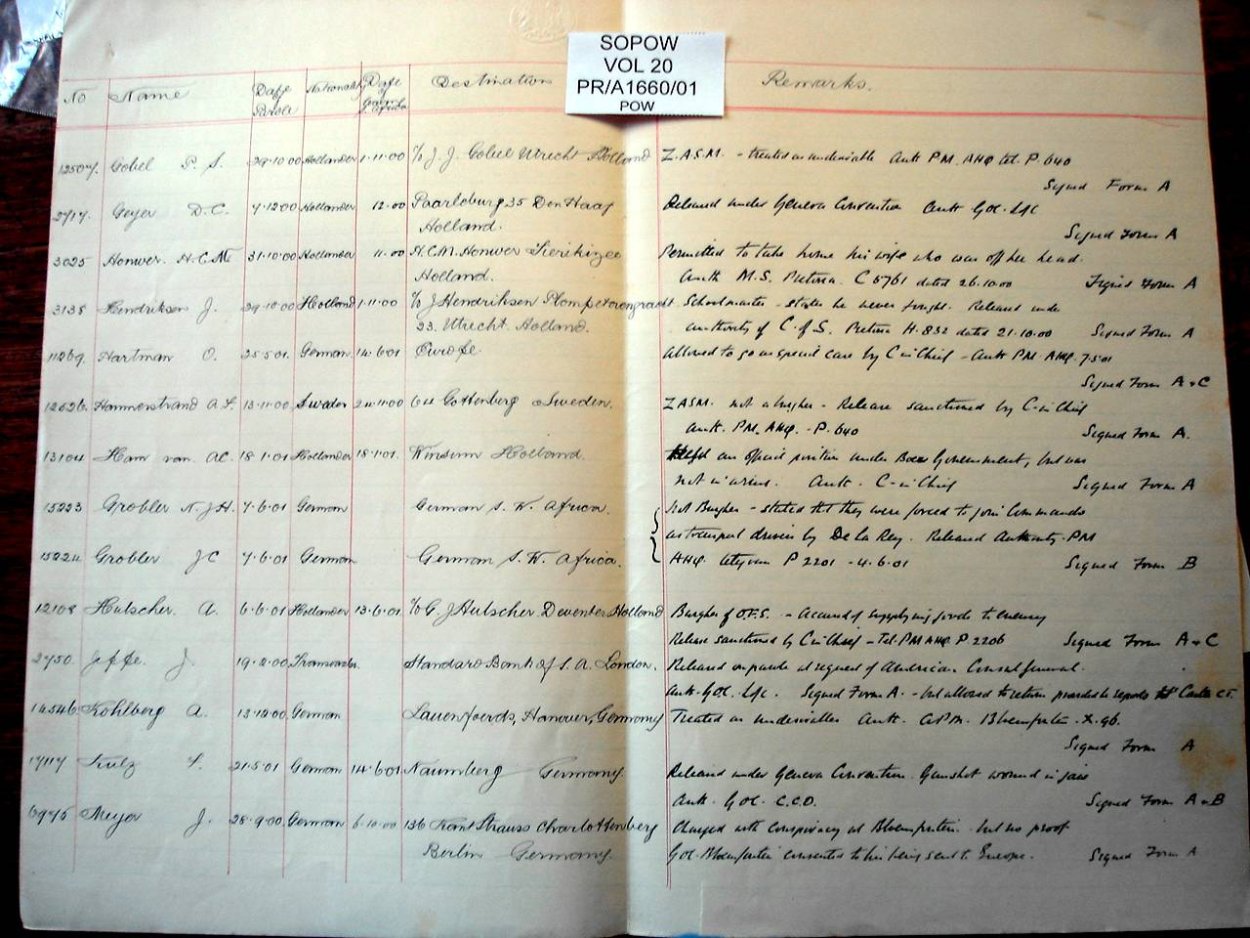 SOPOW
VOL 20
PR/A1660/01
POW
No Name Date Parole Nationality Date of leaving S. Africa Destination Remarks.
Gobel P. S. 29.10.00 Hollander 1.11.00 c/o J. J. Gobel Utrecht Holland Z.A.S.M. - treated as undesirable Auth PM. AHQ tel. P. 640
Signed Form A
Geyer D.C. 7.12.00 Hollander 12.00 35 Den Haag Released under Geneva Convention Auth GOC. L of C
Holland. Signed Form A
3025 Honwer. H.C.M 31.10.00 Hollander 11.00 H.C.M. Honwer Zierikzee Permitted to take home his wife who was off her head.
Holland. Auth M.S. Pretoria. C 5761 dated 26.10.00 Signed Form A
3135 Hendriksen J. 29.10.00 Holland 1.11.00 c/o J Hendriksen Plompetorengracht Schoolmaster - states he never fought. Released under
33. Utrecht. Holland. authority of C. of S. Pretoria H. 832 dated 21.10.00 Signed Form A
11269. Hartman O. 25.5.01. German. 14.6.01 Europe. Allowed to go as special case by C in Chief - Auth PM. AHQ. 7.5.01
Signed Form A & C
12526. Hammerstrand A. F. 13.11.00 Sweden 24.11.00 Gottenberg Sweden. Z ASM. not a burgher - Release sanctioned by C-in-Chief
Auth. PM. AHQ. - P. 640 Signed Form A.
13104 Ham van. A.C. 18.1.01 Hollander 18.1.01. Winsum Holland. Held an official position under Boer Government, but was
not in arms. Auth. C-in-Chief Signed Form A
15223 Grobler N. J. H. 7.6.01 German German S. W. Africa. Not Burgher - stated tht they were forced to join Commando
as transport drivers by De La Rey. Released Authority PM
15224 Grobler J C 7.6.01 German German S. W. Africa. AHQ telegram P 2201 - 4.6.01 Signed Form B
12108 Hulscher. A. 6.6.01 Hollander 13.6.01. c/o G. J Hulscher. Deventer Holland Burgher of O.F.S. - Accused of supplying goods to enemy
Release sanctioned by C in Chief - Tel. PM AHQ P 2206 Signed Form A & C
2750 Jeffe. J. 19.2.00 Standard Bank of S. A. London. Released on parole at request of American Consul General.
Auth. GOC. L of C. Signed Form A. - but allowed to return provided he reports
14546 Kohlberg A. 13.12.00 German Hanover, Germany Treated as undesirable Auth. Bloemfontein. X. 96.
Signed Form A
17117 Kulz F. 21.5.01 German 14.6.01 Naumberg Germany. Released under Geneva Convention. Gunshot wound in jaw
Auth. GOC. C.C.D. Signed Form A & B
6975 Meyer J. 28.9.00 German 6.10.00 136 Kant Strauss Charlottenberg Charged with conspiracy at Bloemfontein. but no proof
Berlin Germany. GOC. Bloemfontein consented to his being sent to Europe. Signed Form A